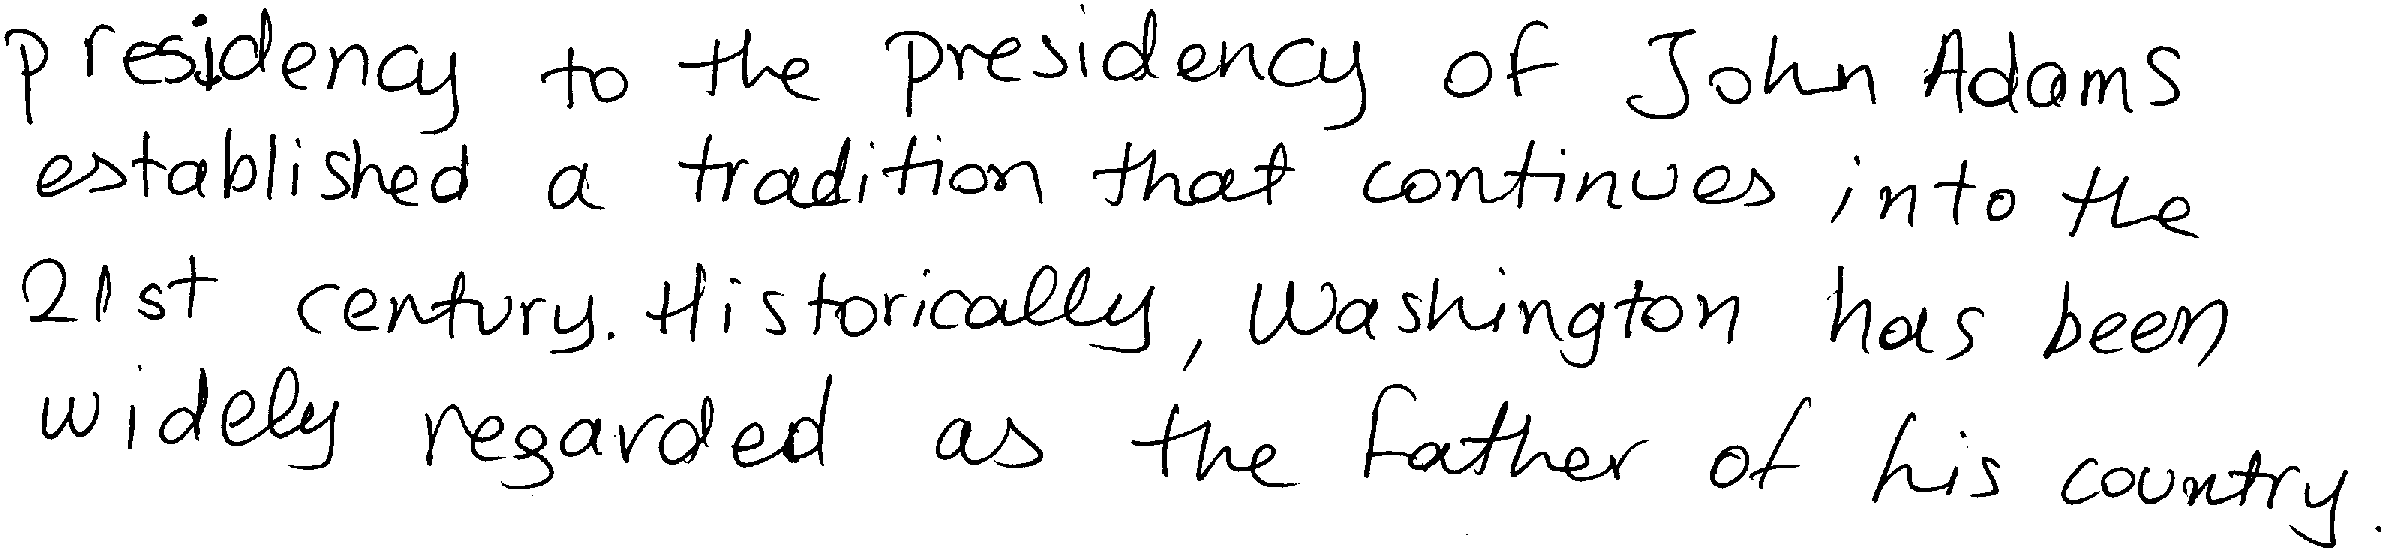 presidency to the presidency of John Adams
established a tradition that continues into the
21st century. Historically, Washington has been
widely regarded as the father of his country.